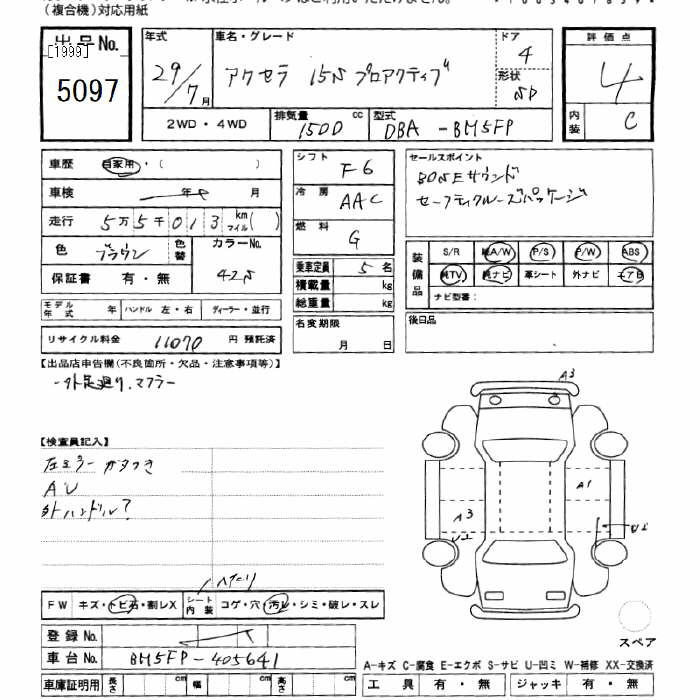 (複合機)対応用紙
出品No.
[1999]
5097
年式 29/7月
車名・グレード アクセラ 15S プロアクティブ
ドア 4
形状 SD
評価点 4
内装 C
2WD・4WD
排気量 1500 cc
型式 DBA-BM5FP
車歴 自家用・( )
車検 年 月
走行 5万5千013 km マイル( )
色 ブラウン 色替 カラーNo. 42S
保証書 有・無
シフト F6
冷房 AAC
燃料 G
乗車定員 5名
積載量 kg
総重量 kg
名変期限 月 日
セールスポイント
BOSEサウンド
セーフティクルーズパッケージ
装備品 S/R 純A/W P/S P/W ABS
純TV 純ナビ 革シート 外ナビ エアB
ナビ型番:
後日品
モデル年式 年 ハンドル 左・右 ディーラー・並行
リサイクル料金 11070 円 預託済
【出品店申告欄(不良箇所・欠品・注意事項等)】
-外足廻り.マフラー
【検査員記入】
左ミラー ガタつき
AU
外ハンドル?
A3
A1
A3
U2
FW キズ・トビ石・割レX シート内装 コゲ・穴・汚レ・シミ・破レ・スレ
登録No.
車台No. BM5FP-405641
スペア
A-キズ C-腐食 E-エクボ S-サビ U-凹ミ W-補修 XX-交換済
車庫証明用 長さ cm 幅 cm 高さ cm
工具 有・無 ジャッキ 有・無